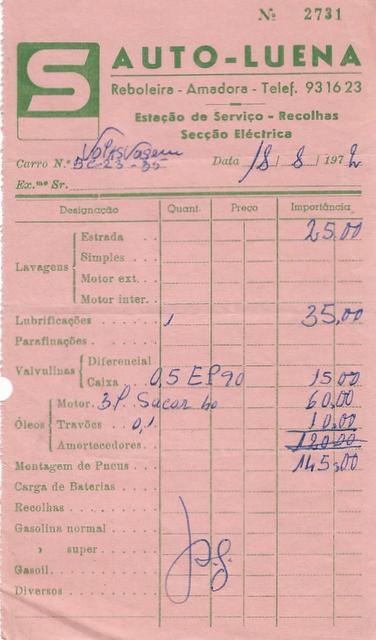 № 2731
S
AUTO-LUENA
Reboleira - Amadora - Telef. 93 16 23
Estação de Serviço - Recolhas
Secção Eléctrica
Volksvagem
Carro N.º Data 18/8/1972
Ex.mo Sr.
Designação Quant. Preço Importância
Lavagens
Estrada 25,00
Simples
Motor ext.
Motor inter.
Lubrificações 1 35,00
Parafinações
Valvulinas
Diferencial
Caixa 0,5 EP90 15 00
Óleos
Motor 3P. 60,00
Travões 0,1 10,00
Amortecedores 120 00
Montagem de Pneus 145,00
Carga de Baterias
Recolhas
Gasolina normal
› super
Gasoil
Diversos